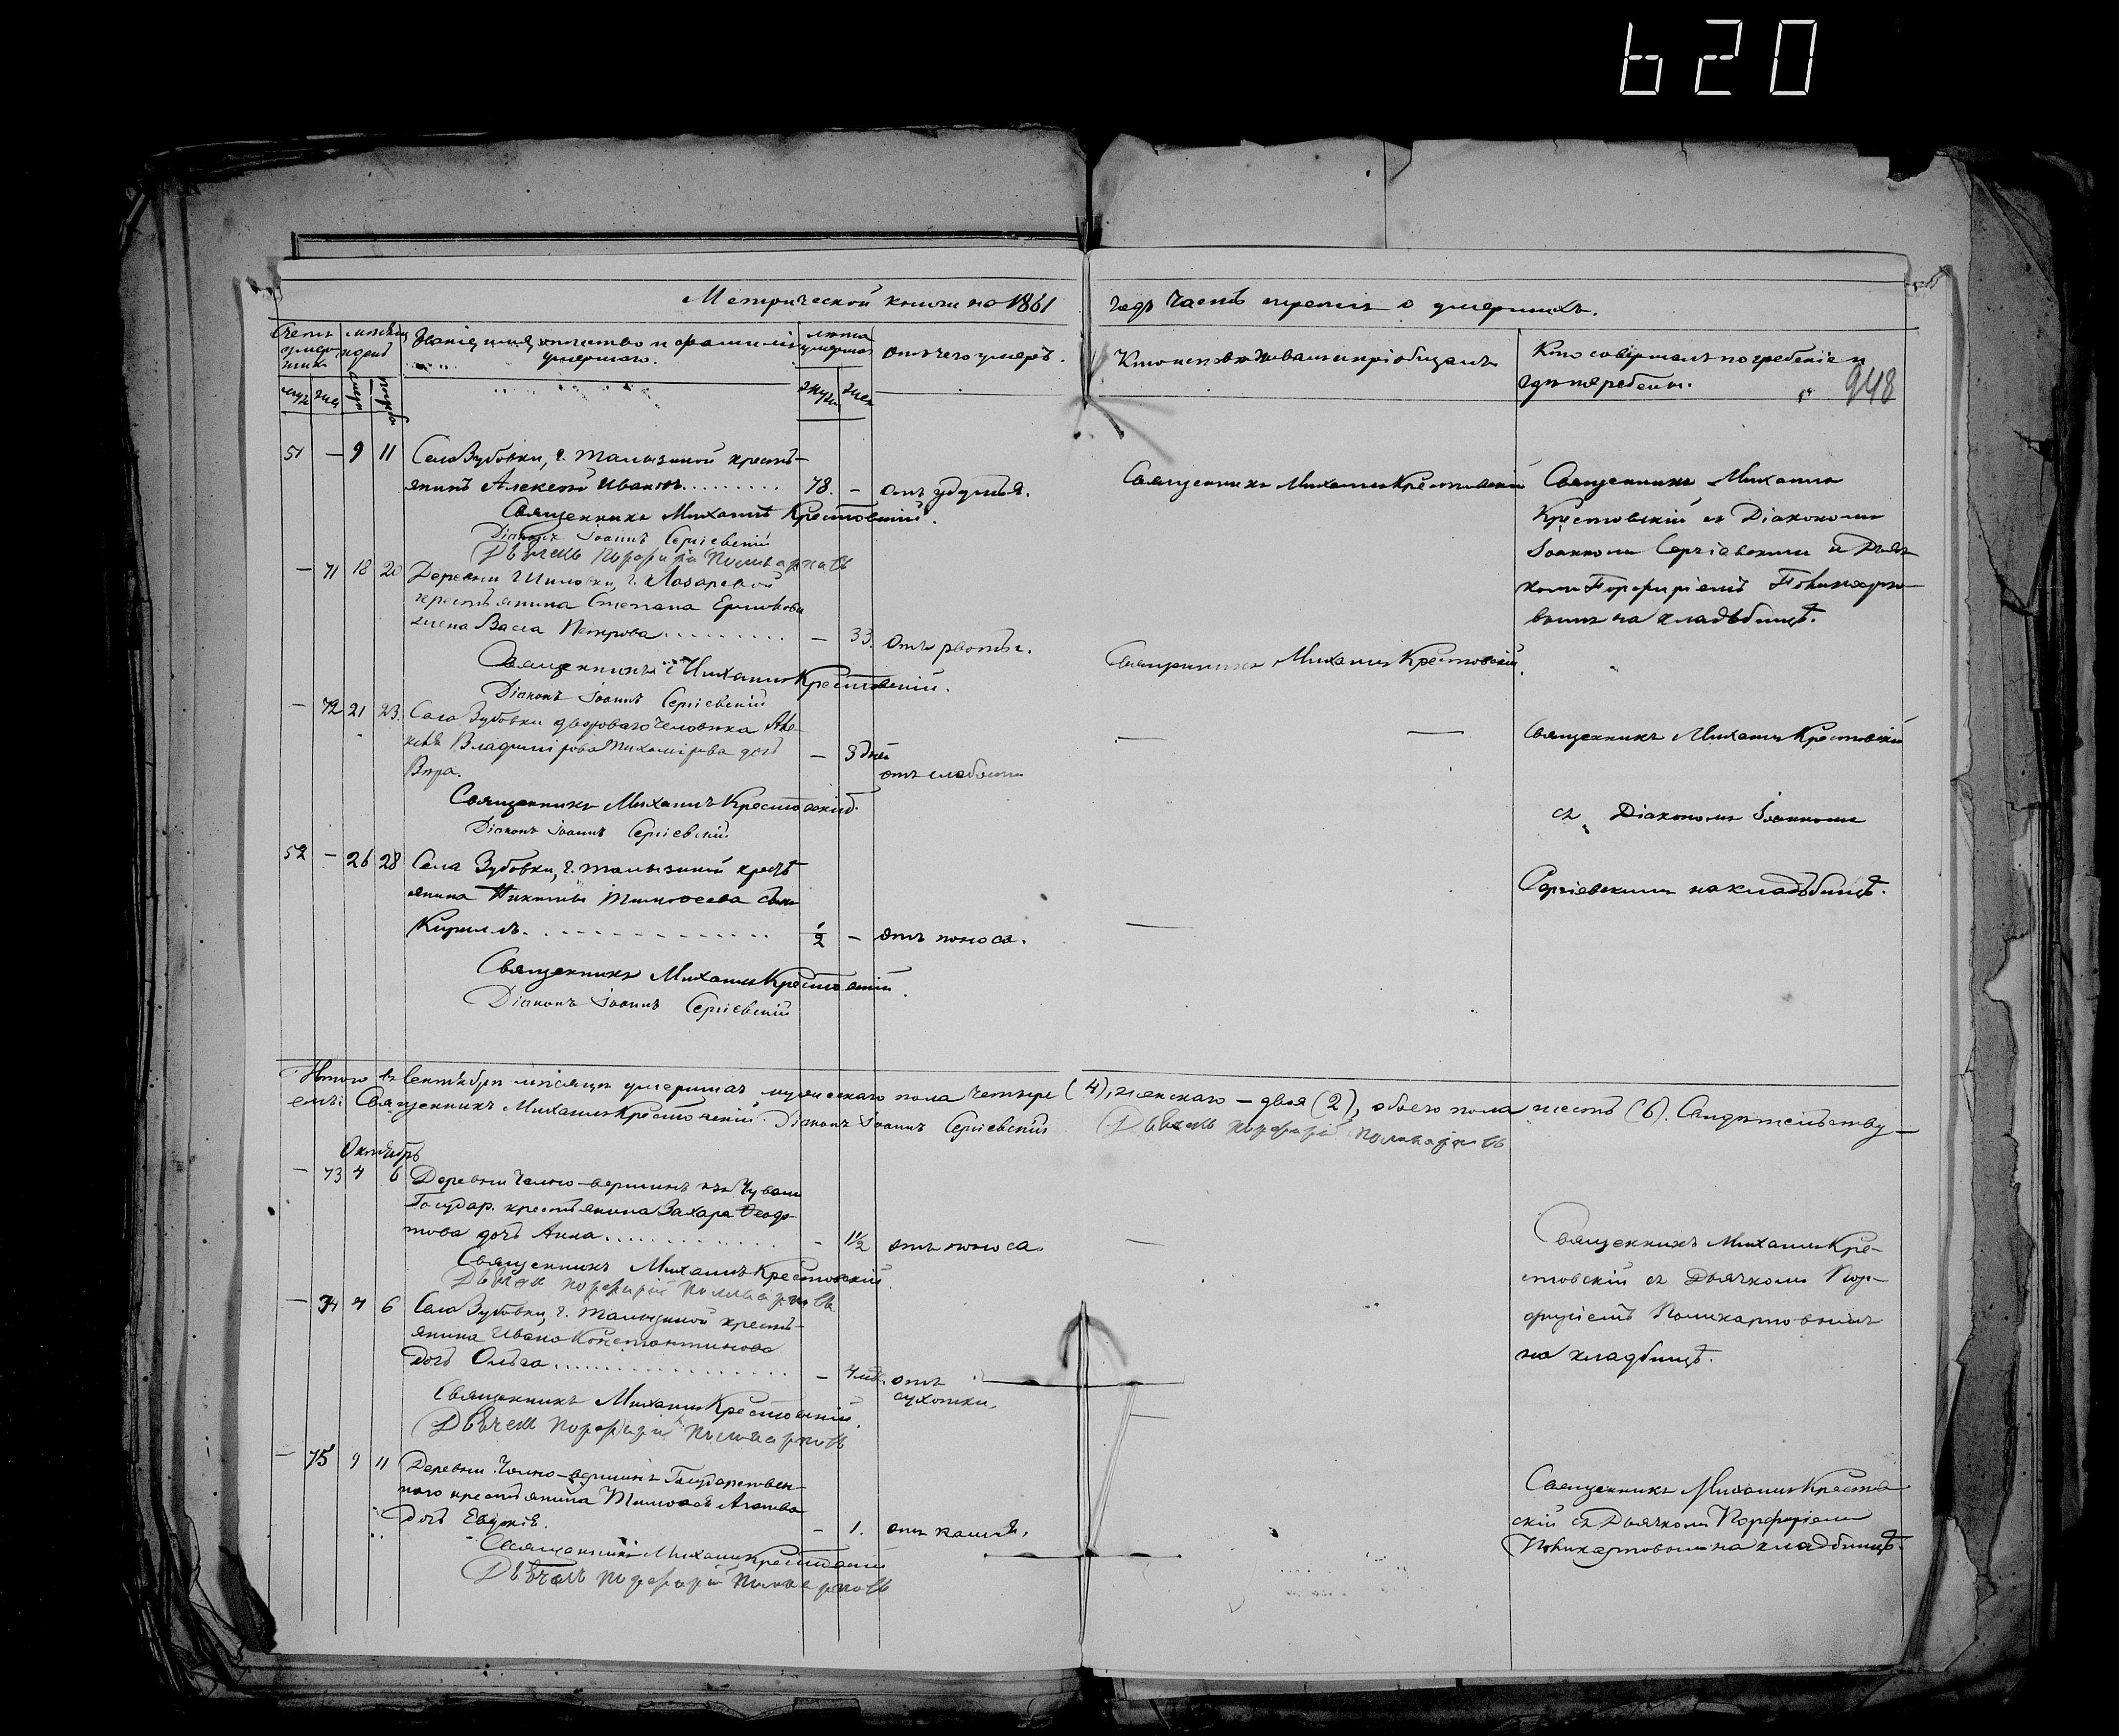 620
Метрической книги на 1861 годъ часть третiя о умершихъ.
Счетъ умер-
шихъ
муж. жен.
Мѣсяцъ и день
смерт. погреб.
Званiе, имя, отчество и фамилiя
умершаго.
Лѣта
умершаго
муж. жен.
отъ чего умеръ.
Кто исповѣдывалъ и прiобщалъ
Кто совершалъ погребенiе и
гдѣ погребены.
948
51 — 9 11 Села Зубовки, г. Талызиной кресть-
янинъ Алексѣй Ивановъ......... 78. — отъ удушья.
Священникъ Михаилъ Крестовскiй.
Дiаконъ Iоаннъ Сергiевскiй
Дьячекъ Порфирiй Поликарповъ
Священникъ Михаилъ Крестовскiй
Священникъ Михаилъ
Крестовскiй съ Дiакономъ
Iоанномъ Сергiевскимъ и Дьяч-
комъ Порфирiемъ Поликарпо-
вымъ на кладбищѣ.
— 71 18 20 Деревни Шиловки, г. Лазаревой
крестьянина Степана
жена Васса Петрова......... — 33. отъ рвоты.
Священникъ Михаилъ Крестовскiй.
Дiаконъ Iоаннъ Сергiевскiй
Священникъ Михаилъ Крестовскiй.
— 72 21 23. Села Зубовки двороваго человѣка Але-
ксѣя Владимiрова Тихомiрова дочь
Вѣра. — 3 дней отъ слабости
Священникъ Михаилъ Крестовскiй.
Дiаконъ Iоаннъ Сергiевскiй
— —
Священникъ Михаилъ Крестовскiй
съ Дiакономъ Iоанномъ
Сергiевскимъ на кладбищѣ.
52 — 26 28 Села Зубовки, г. Талызиной кресть
янина Никиты Тимоѳеева сынъ
Кириллъ............... 1/2 — отъ поноса.
Священникъ Михаилъ Крестовскiй.
Дiаконъ Iоаннъ Сергiевскiй
—
Итого въ Сентябрѣ мѣсяцѣ умершихъ мужескаго пола четыре (4), женскаго — двѣ (2), обоего пола шесть (6). Свидѣтельству—
емъ: Священникъ Михаилъ Крестовскiй. Дiаконъ Iоаннъ Сергiевскiй Дьячекъ Порфирiй Поликарповъ
Октябрь
— 73 4 6 Деревни Челно-вершинъ изъ Чувашъ
Государ. крестьянина Захара Ѳедо-
това дочь Анна............. — 1 1/2 отъ поноса.
Священникъ Михаилъ Крестовскiй.
Дьячекъ Порфирiй Поликарповъ
—
Священникъ Михаилъ Кре-
стовскiй съ Дьячкомъ Пор-
фирiемъ Поликарповымъ
на кладбищѣ.
— 74 4 6 Села Зубовки, г. Талызиной кресть-
янина Ивана Константинова
дочь Ольга............... — отъ
сухотки.
Священникъ Михаилъ Крестовскiй.
Дьячекъ Порфирiй Поликарповъ
— 75 9 11 Деревни Челно-вершинъ Государствен-
наго крестьянина Тимоѳея
дочь Евдокiя. — 1. отъ кашля.
Священникъ Михаилъ Крестовскiй
Дьячекъ Порфирiй Поликарповъ
Священникъ Михаилъ Крестов
скiй съ Дьячкомъ Порфирiемъ
Поликарповымъ на кладбищѣ.